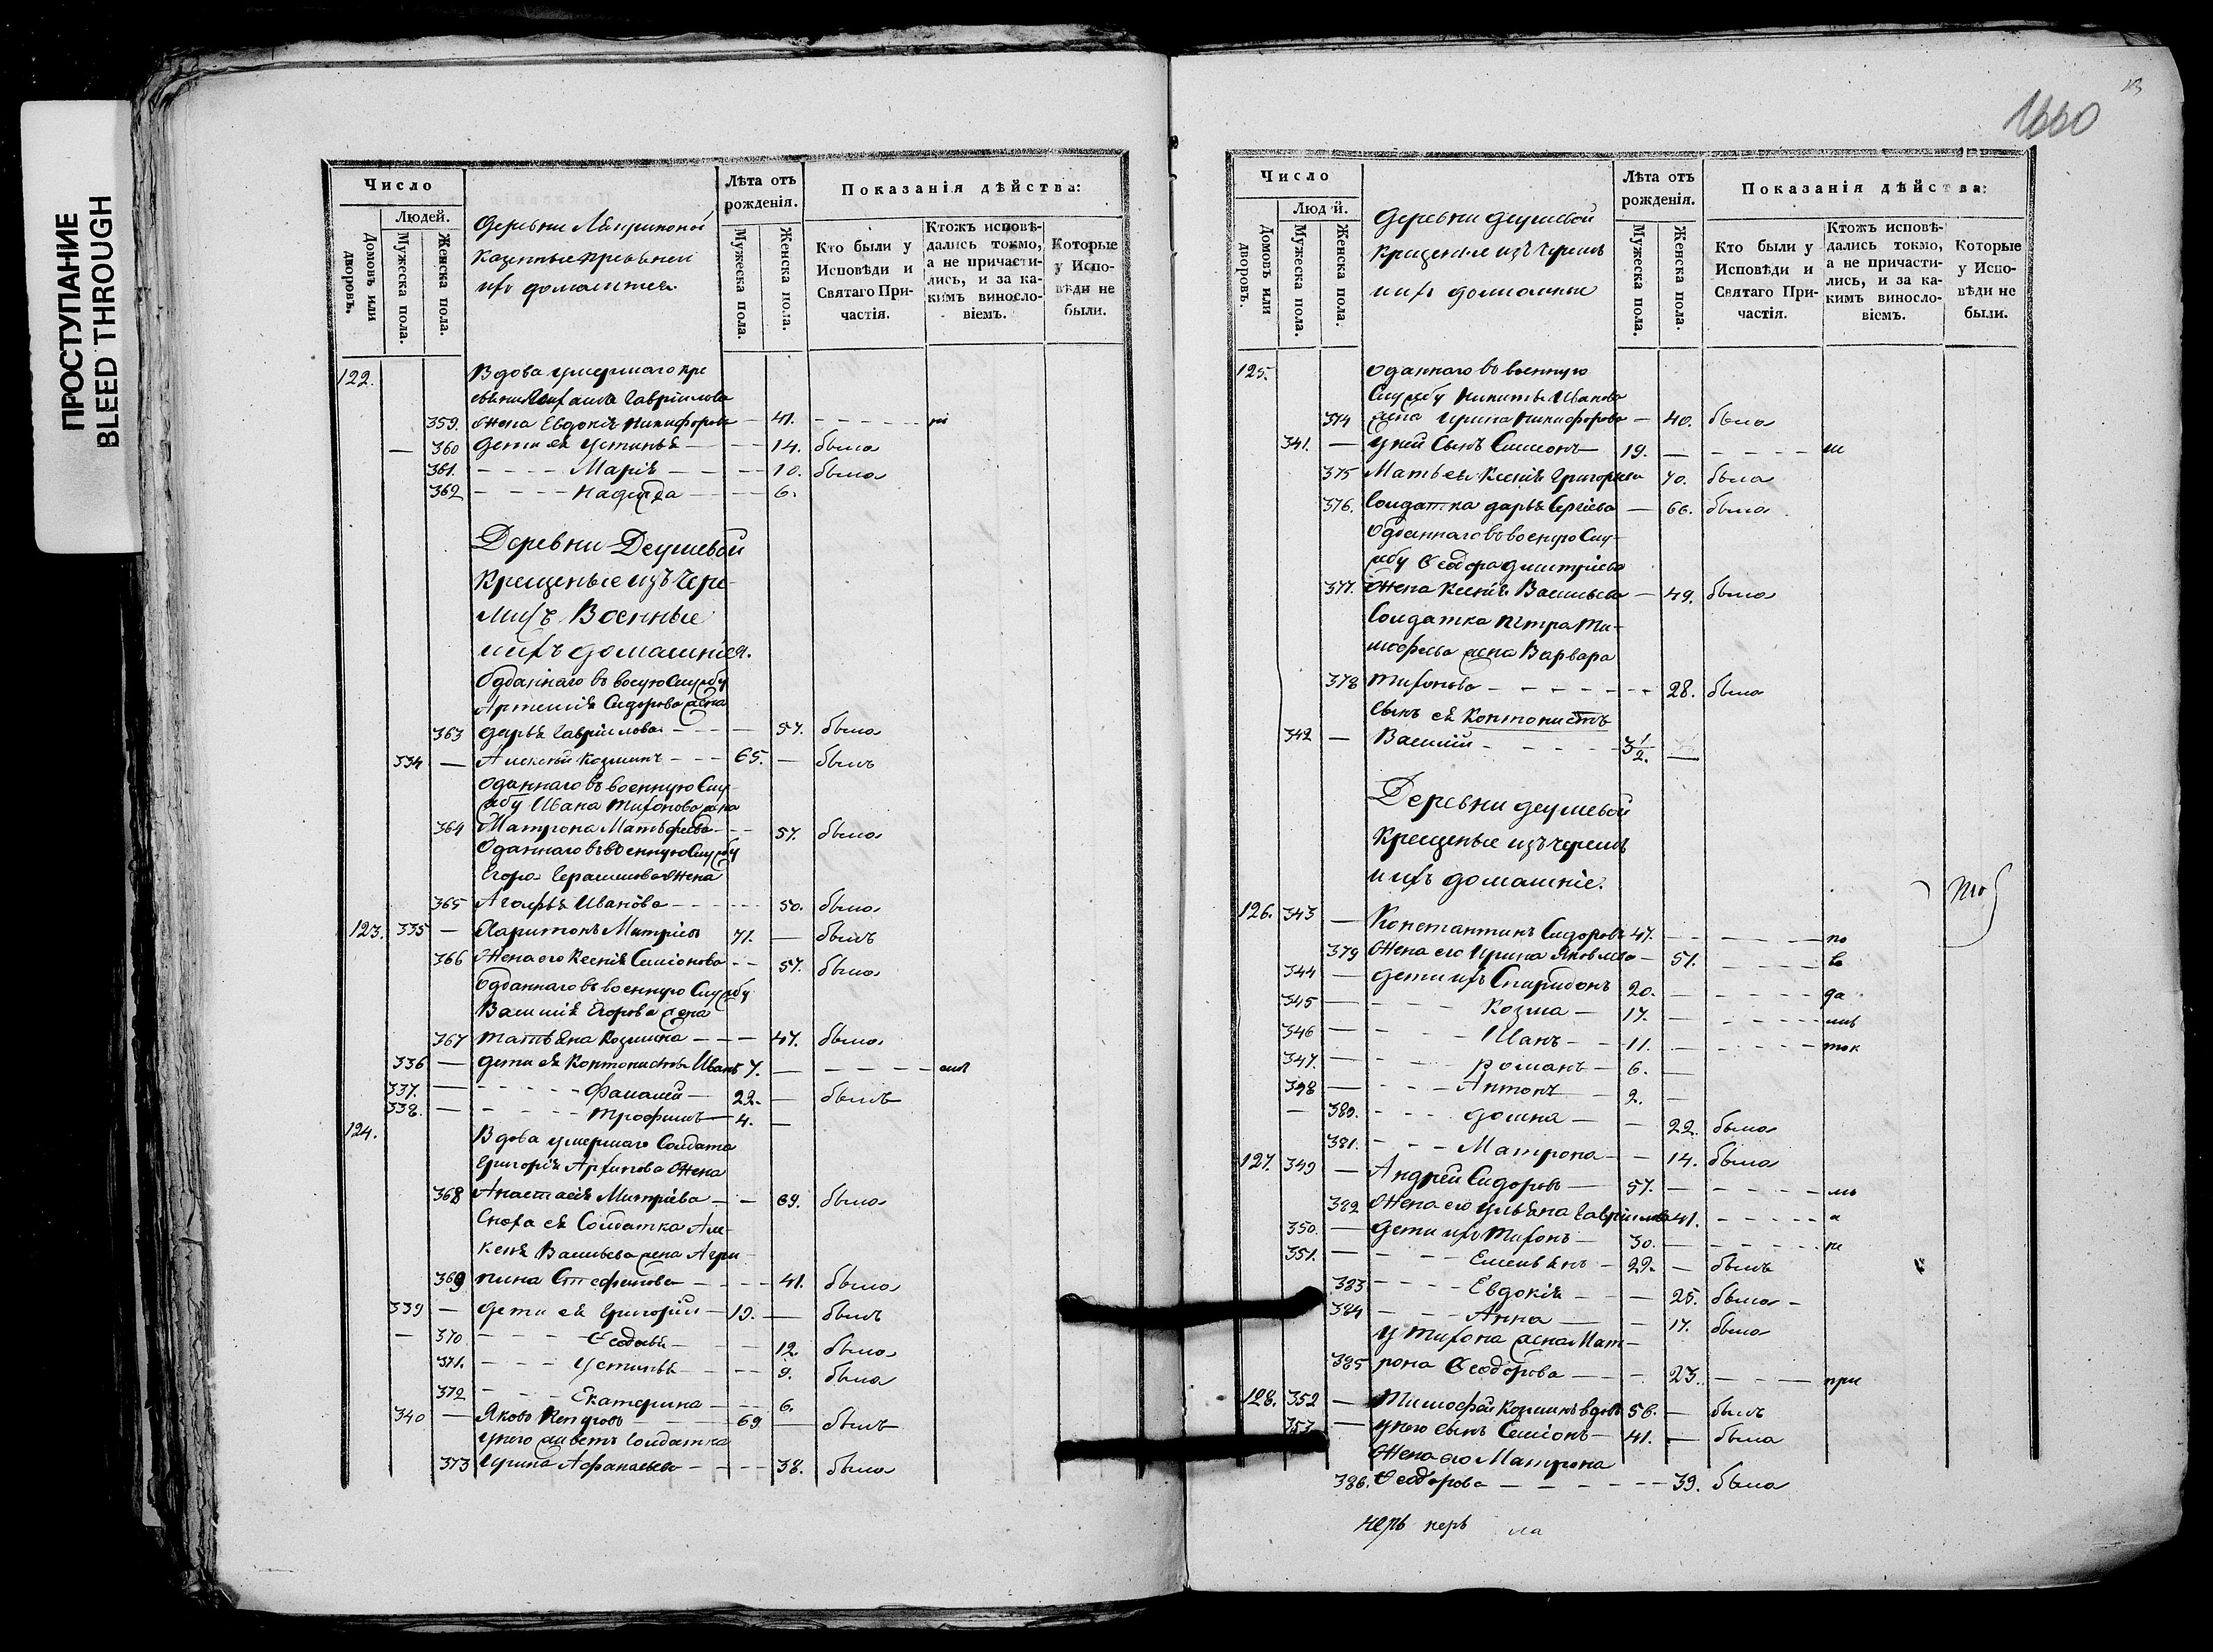 ПРОСТУПАНИЕ
BLEED THROUGH
Число
Людей.
Домовъ или дворовъ.
Мужеска пола.
Женска пола.
Деревни
казенные
ихъ домашнiя
Лѣта отъ рожденія.
Мужеска пола.
Женска пола.
Показанія дѣйства:
Кто были у Исповѣди и Святаго Причастія.
Ктожъ исповѣдались токмо, а не причастились, и за какимъ винословіемъ.
Которые у Исповѣди не были.
122. Вдова умершаго кре
Гаврилова
359. Жена Евдокія Никифорова — 41. - - - - -
— 360 Дети ея Устинья — 14. была
361. - - - - Марія — — 10. была
362 - - - - Надежда — 6.
Деревни Деушевой
Крещеные изъ Чере-
мисъ Военные
и ихъ домашнiя.
Одданнаго въ воеую Службу
Артемія Сидорова жена
363 Дарья Гаврилова - - - 57. была
334 — Алексѣй Козминъ - - - 65. — былъ
Оданнаго въ военную Слу
жбу Ивана Тихонова жена
364 Матрона Матвѣева - - 57. была
Оданнаго въ военную Службу
Егора Герасимова Жена
365 Агафья Иванова - - - - - 50. была
123. 335 — Харитонъ Митріевъ 71. — былъ
366 Жена его Ксенія Симіонова - - 57. была
Одданнаго въ военную Службу
Василія Егорова жена
367 Татьяна Козмина - - - 47. была
336 — Дети ея Кантонистъ Иванъ 7. — - - - -
337. — - - - - - Фалалей — 22. — былъ
338. — - - - - Трофимъ — 4. —
124. Вдова умершаго Солдата
Григорія Архипова Жена
368 Анастасія Митріева - - 69. была
Сноха ея Солдатка Але-
ксѣя Васильева жена Агри-
369 пина Стефанова - - - - 41. была
339 — Дети ея Григорій — 19. — былъ
— 370 - - - - Феодосья - - 12. была
371. - - - - Устинья - - - 9. была
372 - - - Екатерина - - - 6.
340 — Яковъ Петровъ - - 69 — былъ
у него живетъ Солдатка
373 Ирина Афанасьева - - - - 38. была
1660
Число
Людей.
Домовъ или дворовъ.
Мужеска пола.
Женска пола.
Деревни Деушевой
крещеные изъ Черемъ
и ихъ домашные
Лѣта отъ рожденія.
Мужеска пола.
Женска пола.
Показанія дѣйства:
Кто были у Исповѣди и Святаго Причастія.
Ктожъ исповѣдались токмо, а не причастились, и за какимъ винословіемъ.
Которые у Исповѣди не были.
125. Оданнаго въ военную
Службу Никиты Иванова
374 жена Ирина Никифорова — 40. была
341. — У ней Сынъ Симеонъ — 19. — - - - -
375 Мать ея Ксенія Григорьева 70. была
376. Солдатка Дарья Сергіева — 66. была
Одданнаго въ военую Слу-
жбу Феодора Дмитріева
377. Жена Ксенія Васильева — 49. была
Солдатка Петра Ти-
мофѣева жена Варвара
378 Тихонова - - - - - - - 28. была
Сынъ ея Кантонистъ
342 — Василій - - - - - 3 1/2. —
Деревни Деушевой
Крещеные изъ черемъ
и ихъ домашніе.
126. 343 — Константинъ Сидоровъ 47. - - - - - по
379 Жена его Ирина Яковлева — 51. - - - -
344 — Дети ихъ Спиридонъ 20. — - - - - да
345 — - - - Козма — 17. — - - - -
346 — - - - Иванъ - - 11. — - - - - ток
347. — - - - Романъ — 6. —
348 — - - - Антонъ 2. —
— 380. - - - - Домна — — 22. была
381. - - - Матрона - - 14. была
127. 349 — Андрей Сидоровъ — 57. — - - - -
382 Жена его Ульяна Гаврилова 41. - - - -
350. — Дети ихъ Тихонъ — 30. — - - - - не
351. — - - - Емельянъ — 22. — былъ
383 - - - - Евдокія - - — 25. была -
384 - - - Анна — — 17. была
У Тихона жена Мат-
385 рона Феодорова — — - 23. - - - при
128. 352 — Тимофѣй Козминъ вдовъ 56. — былъ
353 — У него сынъ Симіонъ — 41. — была
Жена его Матрона
386. Феодорова - - - - - - 39. была